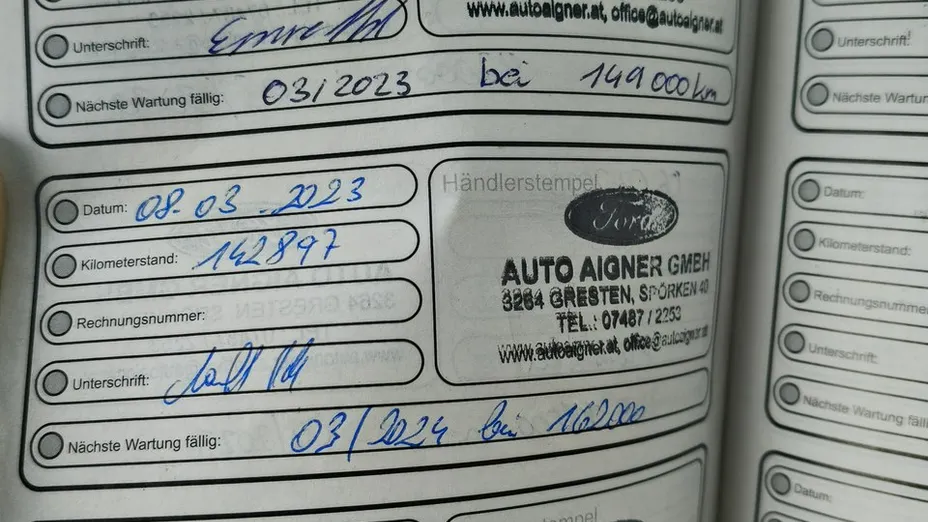 www.autoaigner.at, office@autoaigner.at
Unterschrift:
Nächste Wartung fällig: 03/2023 bei 149000km
Datum: 08-03-2023
Kilometerstand: 142897
Rechnungsnummer:
Unterschrift:
Nächste Wartung fällig: 03/2024 bei 162000
Händlerstempel
Ford
AUTO AIGNER GMBH
3264 GRESTEN, SPÖRKEN 40
TEL.: 07487 / 2253
www.autoaigner.at, office@autoaigner.at
Unterschrift:
Nächste Wartun
Datum:
Kilometerstand:
Rechnungsnumme
Unterschrift:
Nächste Wartung
Datum: